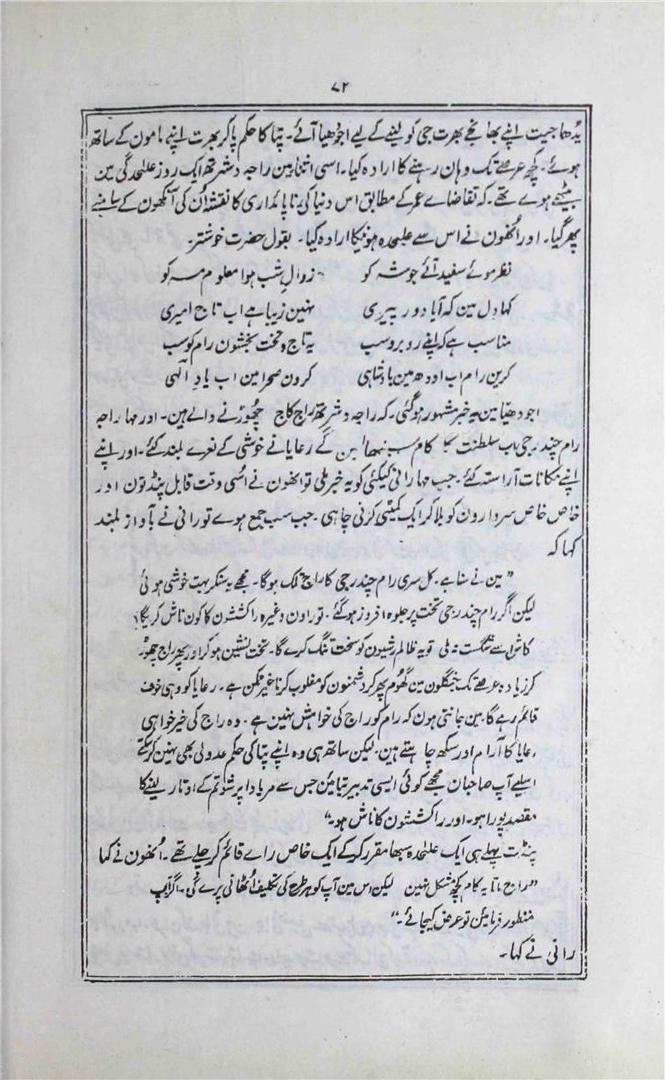 ۷۲
یُدھاجیت اپنے بھانجے بھرت جی کو لینے کے لیے اجودھیا آئے۔ پتا کا حکم پا کر بھرت اپنے مامون کے ساتھ
ہوئے۔ کچھ عرصے تک وہان رہنے کا ارادہ کیا۔ اسی اثنا مین راجہ دشرتھ ایک روز علیٰحدگی مین
بیٹھے ہوے تھے۔ کہ تقاضاے عمر کے مطابق اس دنیا کی ناپائداری کا نقشہ اُن کی آنکھون کے سامنے
پھر گیا۔ اور اُنھون نے اس سے علیٰحدہ ہونیکا ارادہ کیا۔ بقول حضرت خوشتر۔
نظر موئے سفید آئے جو شہ کو زوالِ شب ہوا معلوم مہ کو
کہا دل مین کہ آیا دورِ پیری نہین زیبا ہے اب تاج امیری
مناسب ہے کہ اپنے روبرو سب یہ تاج و تخت بخشون رام کو سب
کرین رام اب اودھ مین بادشاہی کرون صحرا مین اب یادِ الٰہی
اجودھیا مین یہ خبر مشہور ہو گئی۔ کہ راجہ دشرتھ راج کاج چھوڑنے والے ہین۔ اور مہاراجہ
رام چندر جی اب سلطنت کا کام سنبھالین گے رعایا نے خوشی کے نعرے بلند کئے۔ اور اپنے
اپنے مکانات آراستہ کئے۔ جب مہارانی کیکئی کو یہ خبر ملی تو انھون نے اُسی وقت قابل پنڈتون اور
خاص خاص سردارون کو بلا کر ایک کمیٹی کرنی چاہی۔ جب سب جمع ہوے تو رانی نے بآواز بلند
کہا کہ
”مین نے سنا ہے۔ کل سری رام چندر جی کا راج تلک ہوگا۔ مجھے یہ سنکر بہت خوشی ہوئی
لیکن اگر رام چندر جی تخت پر جلوہ افروز ہو گئے۔ تو راون وغیرہ راکشسون کا کون ناش کریگا؟
کاش اُسے شکست نہ ملی تو یہ ظالم رشیون کو سخت تنگ کرے گا۔ تخت نشین ہو کر اور پھر راج چھوڑ
کر زیادہ عرصے تک جنگلون مین گھوم پھر کر دشمنون کو مغلوب کرنا غیر ممکن ہے۔ رعایا کو وہی خوف
قائم رہے گا۔ مین جانتی ہون کہ رام کو راج کی خواہش نہین ہے۔ وہ راج کی خیر خواہی
رعایا کا آرام اور سکھ چاہتے ہین۔ لیکن ساتھ ہی وہ اپنے پتا کی حکم عدولی بھی نہین کر سکتے
اسلیے آپ صاحبان مجھے کوئی ایسی تدبیر بتائین جس سے مریادا پرشوتم کے اوتار لینے کا
مقصد پورا ہو۔ اور راکشسون کا ناش ہو۔“
پنڈت پہلے ہی ایک علیٰحدہ سبھا مقرر کر کے ایک خاص راے قائم کر چکے تھے۔ اُنھون نے کہا
”راج ماتا یہ کام کچھ مشکل نہین لیکن اس مین آپ کو ہر طرح کی تکلیف اُٹھانی پڑے گی۔ اگر آپ
منظور فرمائین تو عرض کیجائے۔“
رانی نے کہا۔